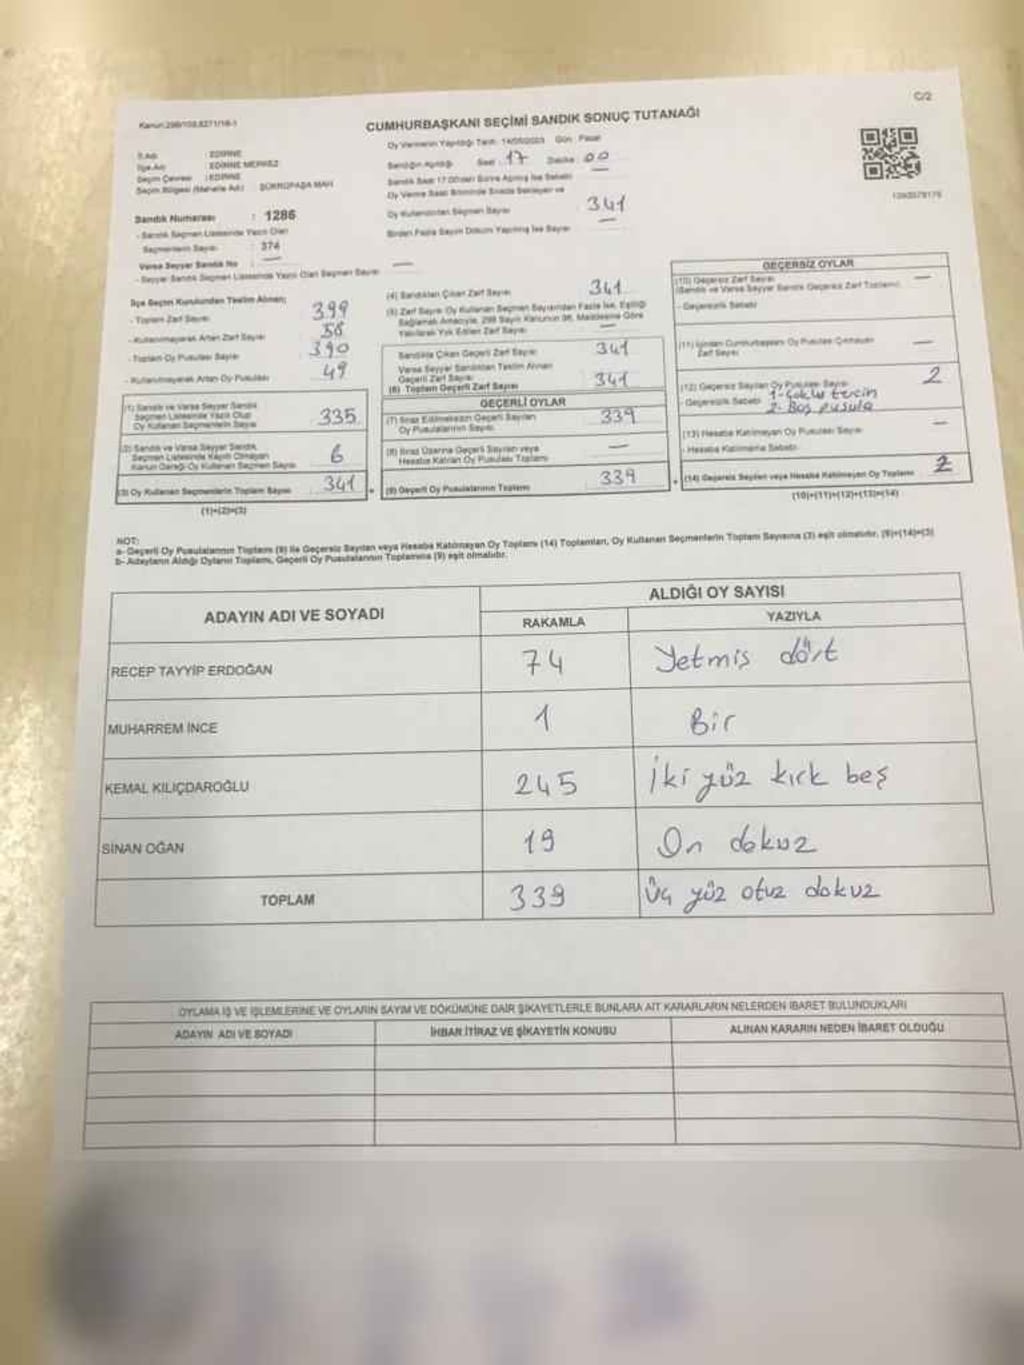 C/2
Kanun:298/109,6271/18-1
CUMHURBAŞKANI SEÇİMİ SANDIK SONUÇ TUTANAĞI
İl Adı : EDİRNE
İlçe Adı : EDİRNE MERKEZ
Seçim Çevresi : EDİRNE
Seçim Bölgesi (Mahalle Adı) ŞÜKRÜPAŞA MAH
Sandık Numarası : 1286
- Sandık Seçmen Listesinde Yazılı Olan
Seçmenlerin Sayısı : 374
Varsa Seyyar Sandık No : —
- Seyyar Sandık Seçmen Listesinde Yazılı Olan Seçmen Sayısı —
Oy Vermenin Yapıldığı Tarih: 14/05/2023 Gün : Pazar
Sandığın Açıldığı Saat : 17 Dakika : 00
Sandık Saat 17.00'den Sonra Açılmış İse Sebebi —
Oy Verme Saati Bitiminde Sırada Bekleyen ve
Oy Kullandırılan Seçmen Sayısı 341
Birden Fazla Sayım Döküm Yapılmış İse Sayısı —
İlçe Seçim Kurulundan Teslim Alınan;
- Toplam Zarf Sayısı 399
- Kullanılmayarak Artan Zarf Sayısı 58
- Toplam Oy Pusulası Sayısı 390
- Kullanılmayarak Artan Oy Pusulası 49
(1) Sandık ve Varsa Seyyar Sandık
Seçmen Listesinde Yazılı Olup
Oy Kullanan Seçmenlerin Sayısı 335
(2) Sandık ve Varsa Seyyar Sandık
Seçmen Listesinde Kayıtlı Olmayan
Kanun Gereği Oy Kullanan Seçmen Sayısı 6
(3) Oy Kullanan Seçmenlerin Toplam Sayısı 341
(1)+(2)=(3)
(4) Sandıktan Çıkan Zarf Sayısı 341
(5) Zarf Sayısı Oy Kullanan Seçmen Sayısından Fazla İse, Eşitliği
Sağlamak Amacıyla, 298 Sayılı Kanunun 98. Maddesine Göre
Yakılarak Yok Edilen Zarf Sayısı —
Sandıkta Çıkan Geçerli Zarf Sayısı 341
Varsa Seyyar Sandıktan Teslim Alınan
Geçerli Zarf Sayısı
(6) Toplam Geçerli Zarf Sayısı 341
GEÇERLİ OYLAR
(7) İtiraz Edilmeksizin Geçerli Sayılan
Oy Pusulalarının Sayısı 339
(8) İtiraz Üzerine Geçerli Sayılan veya
Hesaba Katılan Oy Pusulası Toplamı —
(9) Geçerli Oy Pusulalarının Toplamı 339
GEÇERSİZ OYLAR
(10) Geçersiz Zarf Sayısı —
(Sandık ve Varsa Seyyar Sandık Geçersiz Zarf Toplamı)
- Geçersizlik Sebebi
(11) İçinden Cumhurbaşkanı Oy Pusulası Çıkmayan —
Zarf Sayısı
(12) Geçersiz Sayılan Oy Pusulası Sayısı 2
- Geçersizlik Sebebi 1-Çoklu tercih
2- Boş pusula
(13) Hesaba Katılmayan Oy Pusulası Sayısı —
- Hesaba Katılmama Sebebi
(14) Geçersiz Sayılan veya Hesaba Katılmayan Oy Toplamı 2
(10)+(11)+(12)+(13)=(14)
NOT:
a- Geçerli Oy Pusulalarının Toplamı (9) ile Geçersiz Sayılan veya Hesaba Katılmayan Oy Toplamı (14) Toplamları, Oy Kullanan Seçmenlerin Toplam Sayısına (3) eşit olmalıdır. (9)+(14)=(3)
b- Adayların Aldığı Oyların Toplamı, Geçerli Oy Pusulalarının Toplamına (9) eşit olmalıdır.
ADAYIN ADI VE SOYADI ALDIĞI OY SAYISI
RAKAMLA YAZIYLA
RECEP TAYYİP ERDOĞAN 74 Yetmis dört
MUHARREM İNCE 1 Bir
KEMAL KILIÇDAROĞLU 245 İki yüz kırk beş
SİNAN OĞAN 19 On dokuz
TOPLAM 339 Üç yüz otuz dokuz
OYLAMA İŞ VE İŞLEMLERİNE VE OYLARIN SAYIM VE DÖKÜMÜNE DAİR ŞİKAYETLERLE BUNLARA AİT KARARLARIN NELERDEN İBARET BULUNDUKLARI
ADAYIN ADI VE SOYADI İHBAR İTİRAZ VE ŞİKAYETİN KONUSU ALINAN KARARIN NEDEN İBARET OLDUĞU